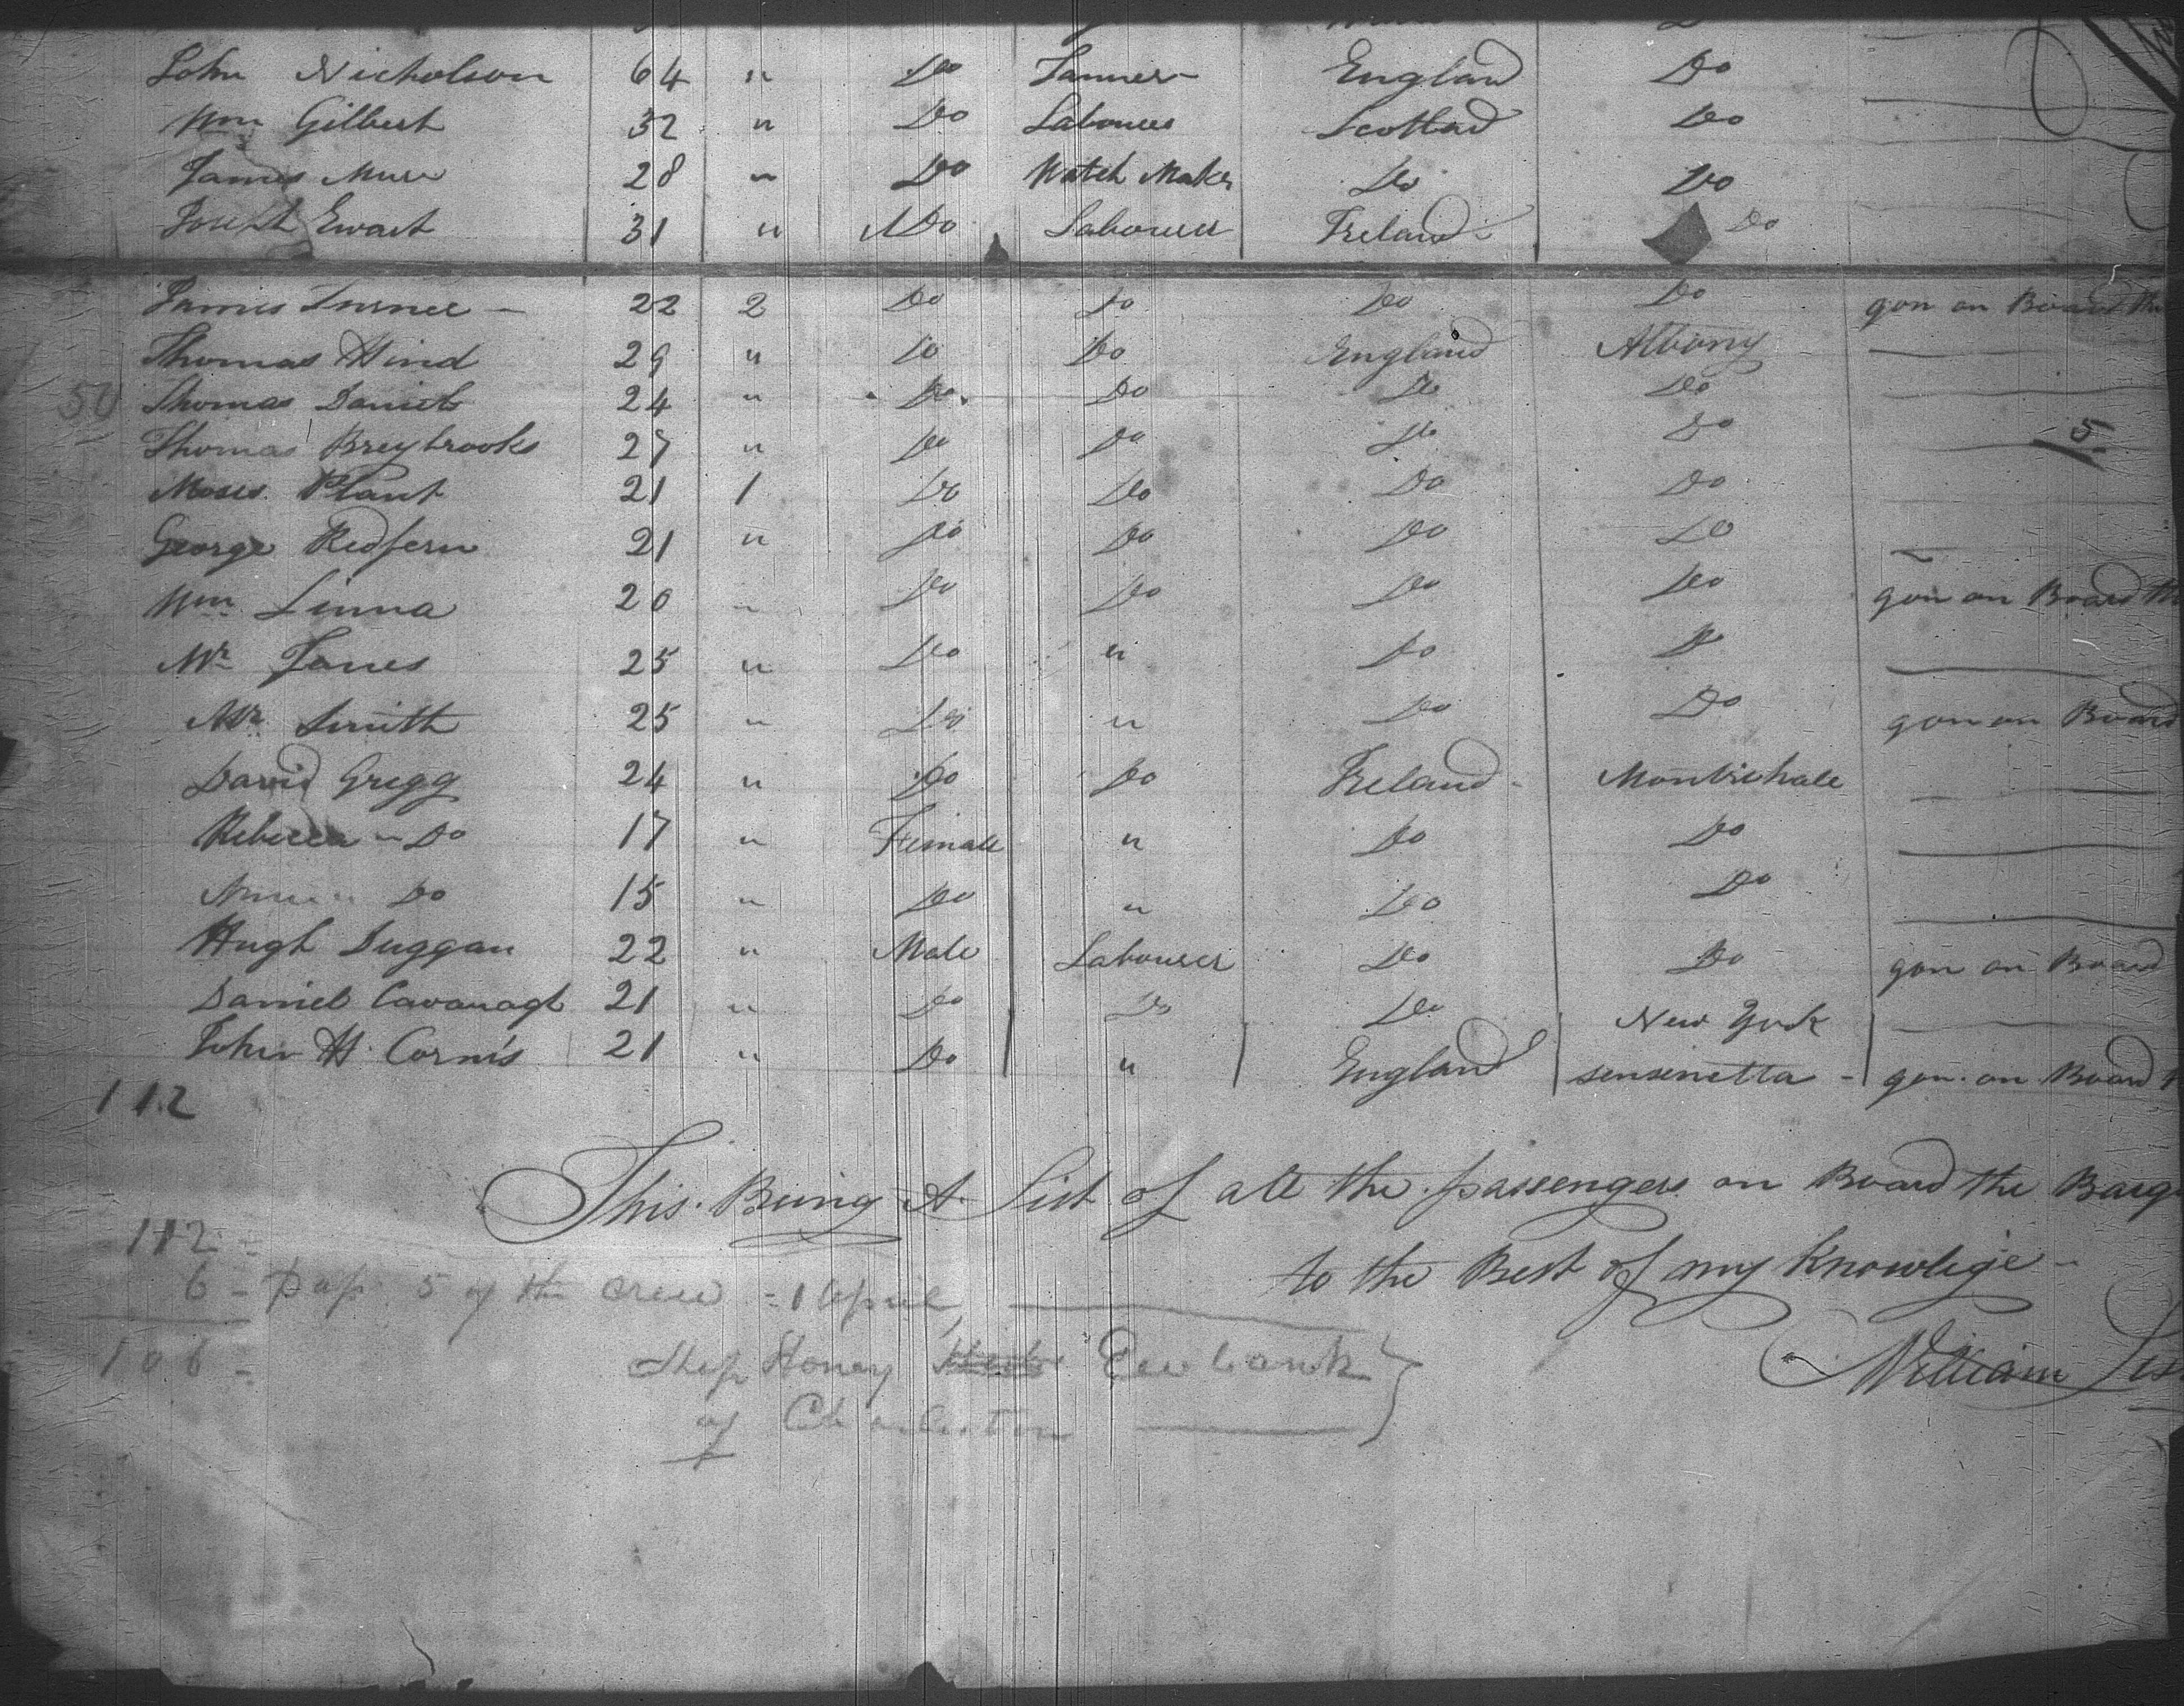 John Nicholson 64 " Do Farmer England Do
Wm Gilbert 32 " Do Labourer Scotland Do
James Muir 28 " Do Watch Maker Do Do
Joseph Ewart 31 " Do Labourer Ireland Do
James Turner 22 2 Do Do Do Do gon on Board the
Thomas Hind 29 " Do Do England Albany
50 Thomas Daniels 24 " Do Do Do Do
Thomas Breybrooks 27 " Do Do Do Do 5
Moses Plant 21 1 Do Do Do Do
George Redfern 21 " Do Do Do Do
Wm Linna 20 " Do Do Do Do gon on Board th
Mr Jones 25 " Do " Do Do
Mr Smith 25 " Do " Do Do gon on Board
David Gregg 24 " Do Do Ireland Montrichale
Rebecca " Do 17 " Female " Do Do
Do 15 " Do " Do Do
Hugh Duggan 22 " Male Labourer Do Do gon on Board
Daniel Cavanagh 21 " Do Do Do New York
John H. Cornis 21 " Do " England sensenetta gon on Board
112
This Being A List of all the passengers on Board the Barq
to the Best of my Knowlige
William
112
6 - 5 of the crew
106
Ship Eewbank
of Charleston